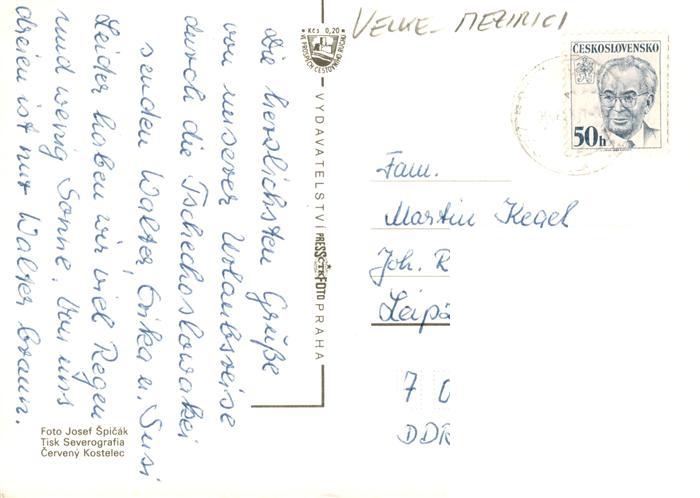 VELKE-MEZIRICI
Kčs 0,20
VE PROSPĚCH CESTOVNÍHO RUCHU
ČESKOSLOVENSKO
50h
Die herzlichsten Grüße
von unserer Urlaubsreise
durch die Tschechoslowakei
senden Walter, Erika u. Susi
Leider haben wir viel Regen
und wenig Sonne. Von uns
dreien ist nur Walter braun.
VYDAVATELSTVÍ PRESSFOTO PRAHA
ČTK
Fam.
Martin Kegel
Joh. R
Leipz
7 0
DDR
Foto Josef Špičák
Tisk Severografia
Červený Kostelec